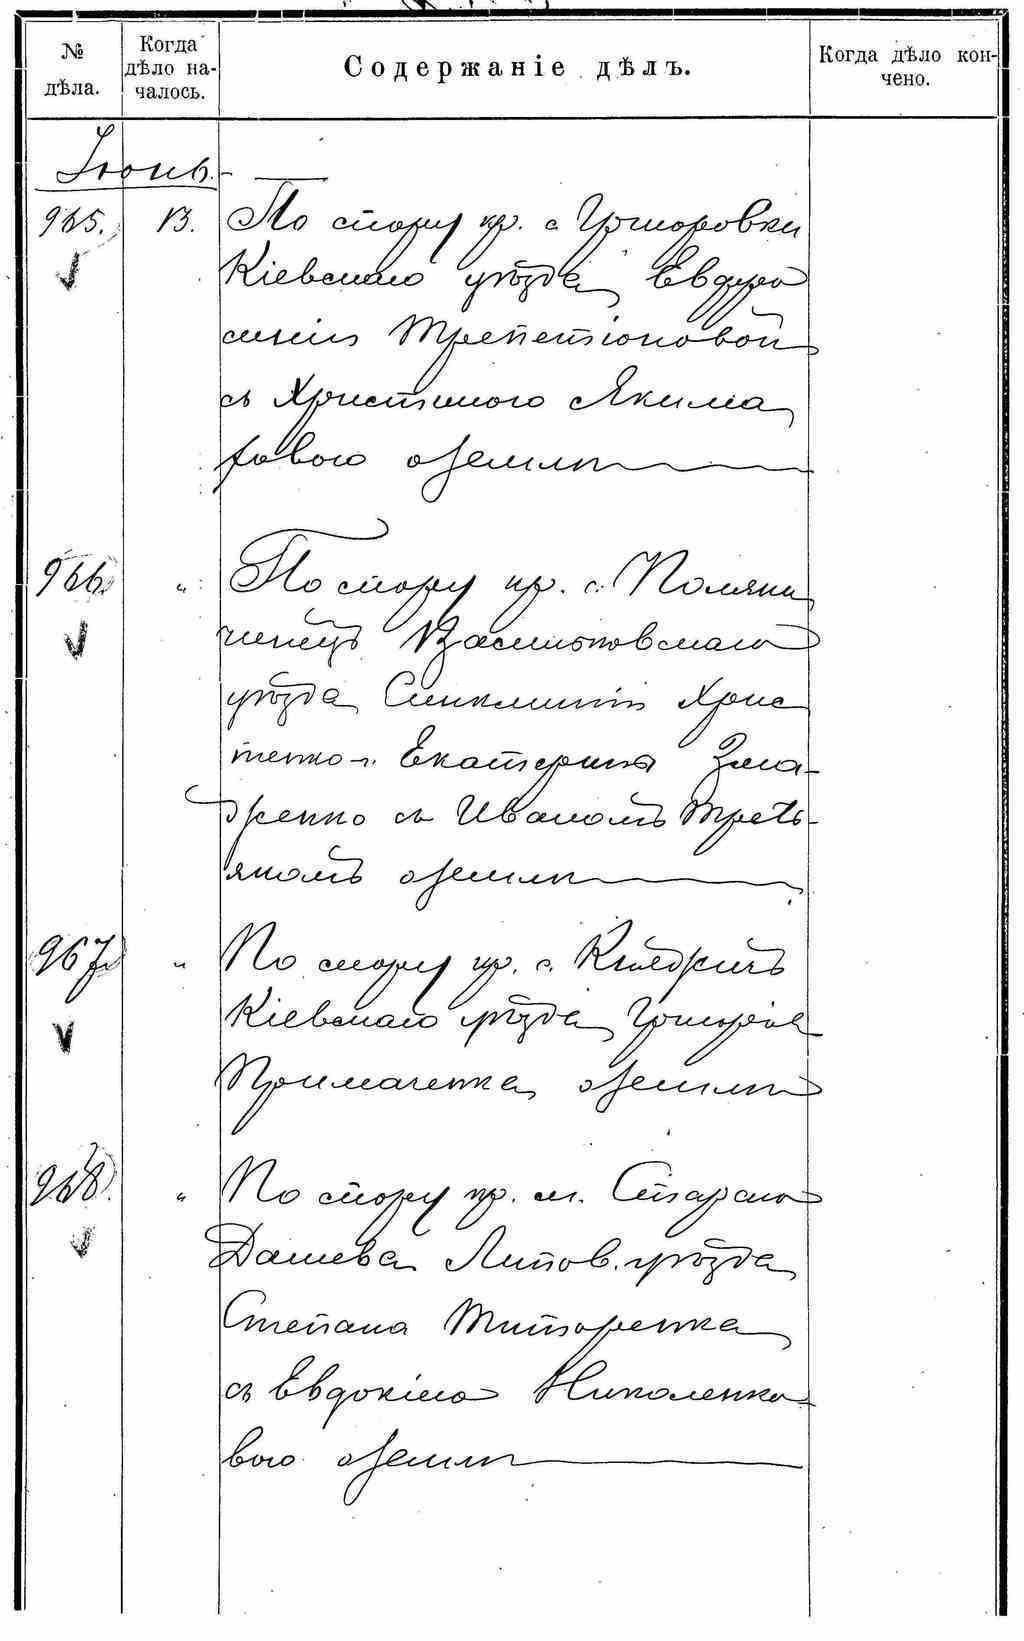 № дѣла.
Когда дѣло на-
чалось.
Содержаніе дѣлъ.
Когда дѣло кон-
чено.
Іюнь.
965. 13. По спору кр. с. Григоровки
Кіевскаго уѣзда Евфро
синіи Трепетіоновой
съ Христиною Якима
ховою о землѣ
966. " По спору кр. с. Поляни
ченецъ Васильковскаго
уѣзда Синклитіи Хрис
тенко и Екатерина Зма
дженко съ Иваномъ Треть-
якомъ о землѣ
967. " По спору кр. с.
Кіевскаго уѣзда Григорія
Примаченка о землѣ
968. " По спору кр. м. Стараго
Дашева Липов. уѣзда
Степана Титаренка
съ Евдокіею Николенко-
вою о землѣ